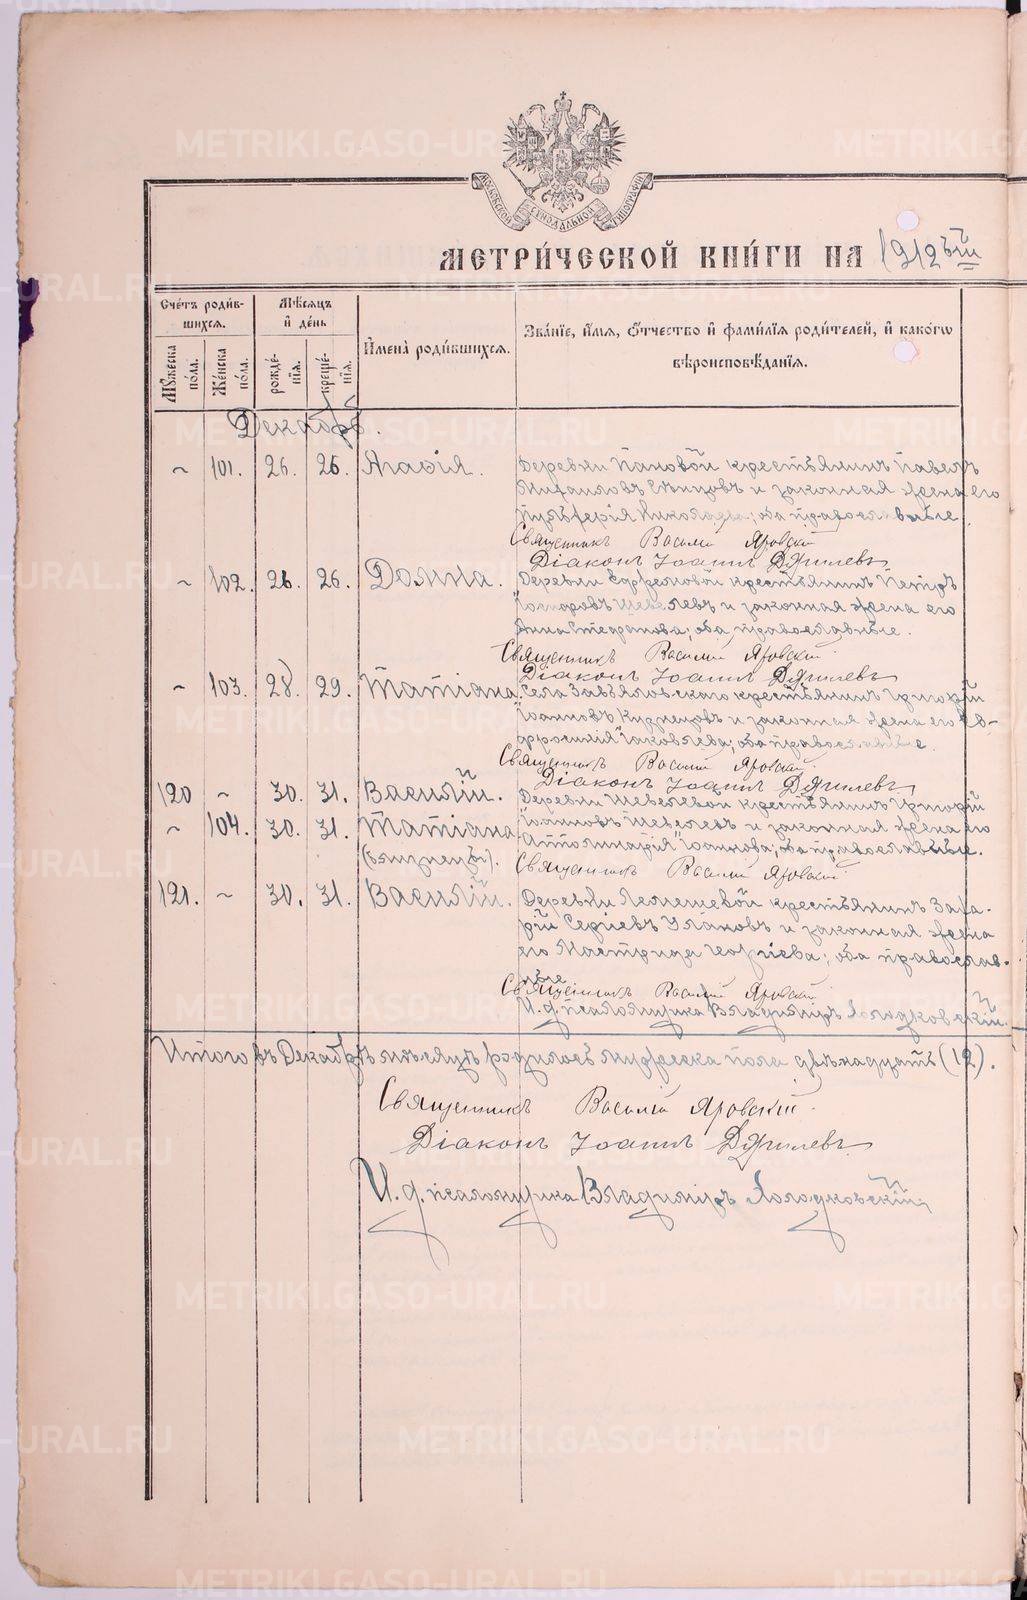 МОСКОВСКОЙ СѴНОДАЛЬНОЙ ТИПОГРАФІИ
МЕТРИ́ЧЕСКОЙ КНИ́ГИ НА 1912ый
Сче́тъ роди́в-
шихся.
Мѣ́сяцъ
и҆ де́нь
И҆мена̀ роди́вшихся.
Зва́нїе, и҆́мя, ѻ҆́тчество и҆ фами́лїя роди́телей, и҆ како́гѡ
вѣроисповѣ́данїя.
Мꙋ́жеска
по́ла.
Же́нска
по́ла.
рожде́-
нїя.
креще́-
нїя.
Декабрь.
~ 101. 26. 26. Агаѳія. Деревни Пановой крестьянинъ Павелъ
Михаиловъ и законная жена его
Николаева; оба православные.
Священникъ Василій Яровскій
Діаконъ Іоаннъ
~ 102. 26. 26. Домна. Деревни крестьянинъ Петръ
Шевелевъ и законная жена его
Анна Стефанова; оба православные.
Священникъ Василій Яровскій
Діаконъ Іоаннъ
~ 103. 28. 29. Татіана. Села Завьяловскаго крестьянинъ Григорій
Іоанновъ Кузнецовъ и законная жена его Ев-
фросинія Іаковлева; оба православные.
Священникъ Василій Яровскій
Діаконъ Іоаннъ
120 ~ 30. 31. Василій. Деревни Шевелевой крестьянинъ Григорій
~ 104. 30. 31. Татіана Іоанновъ Шевелевъ и законная жена его
(близнецы). Іоаннова; оба православные.
Священникъ Василій Яровскій
121. ~ 30. 31. Василій. Деревни крестьянинъ Заха-
рій Сергіевъ Улановъ и законная жена
его Мастридія Георгіева; оба православ-
ные
Священникъ Василій Яровскій
И. д. псаломщика Владиміръ Холодковскій.
Итого въ Декабрѣ мѣсяцѣ родилось мужеска пола двѣнадцать (12).
Священникъ Василій Яровскій.
Діаконъ Іоаннъ
И. д. псаломщика Владиміръ Холодковскій
METRIKI.GASO-URAL.RU